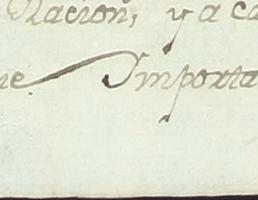 Nacion, y a ca
ne Importa